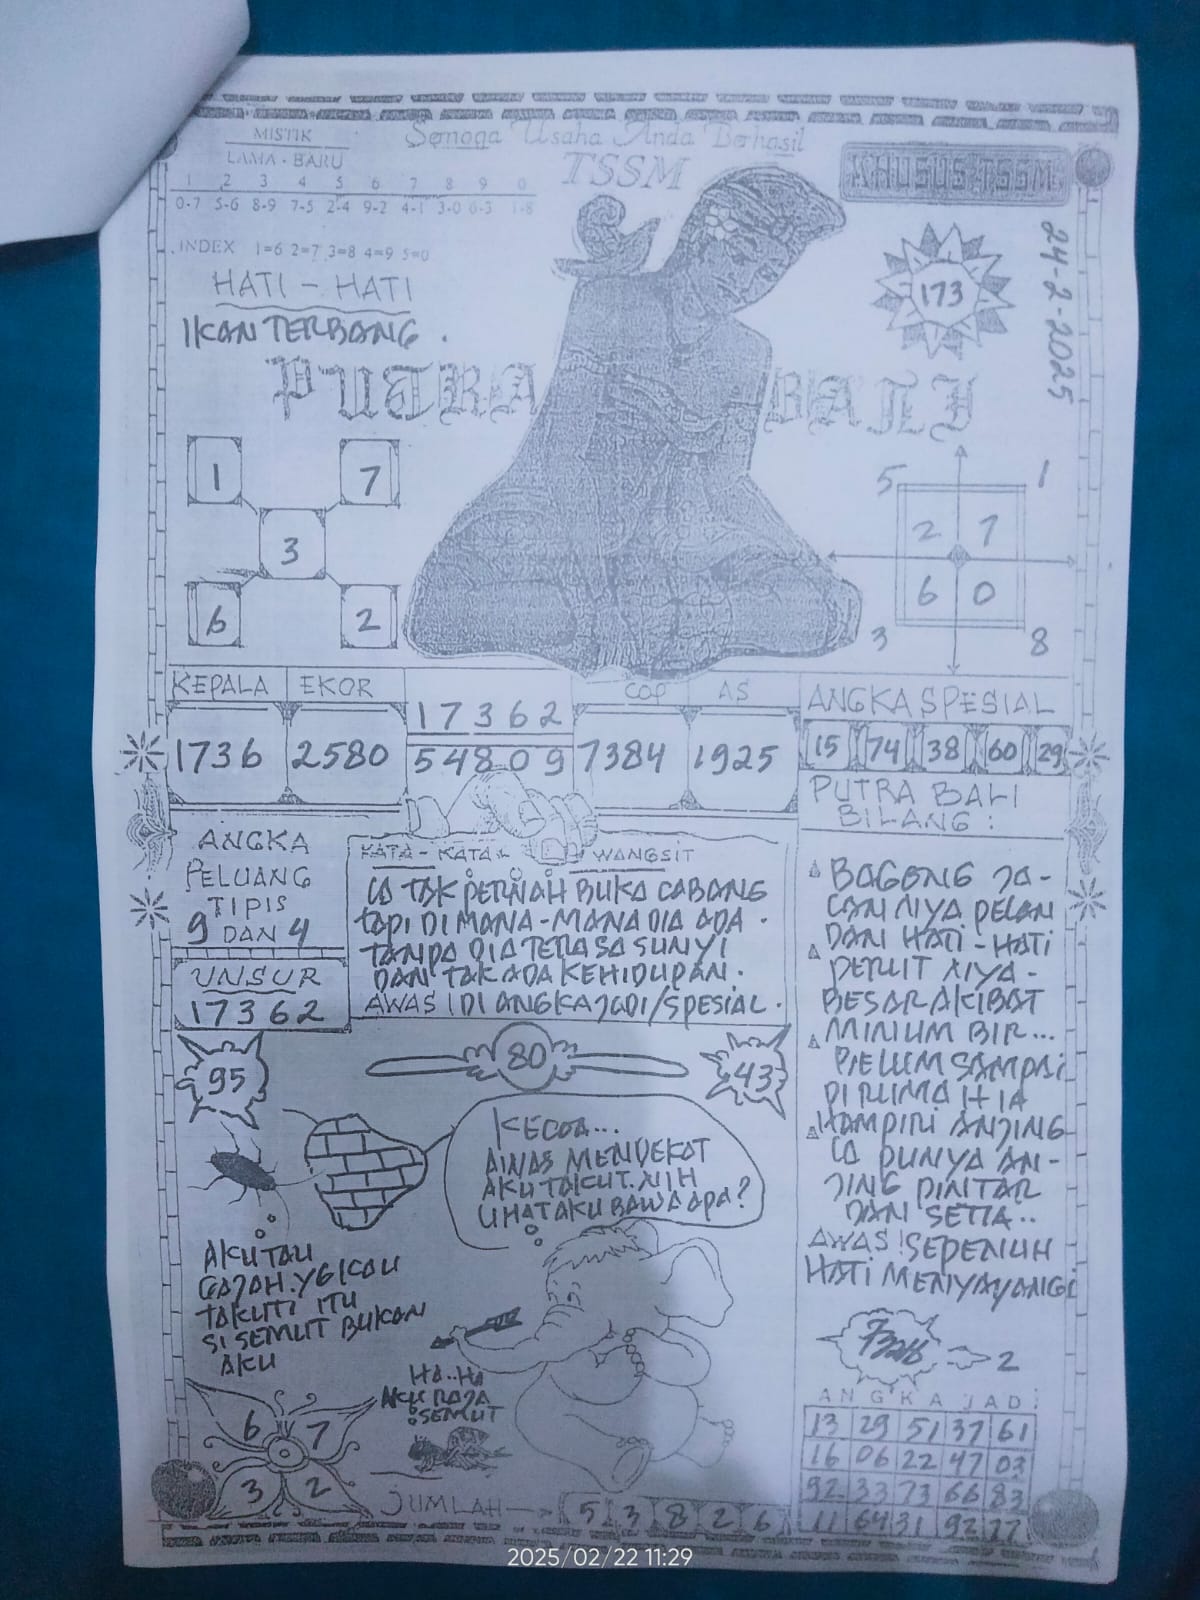 MISTIK
LAMA - BARU
1 2 3 4 5 6 7 8 9 0
0-7 5-6 8-9 7-5 2-4 9-2 4-1 3-0 6-3 1-8
INDEX 1=6 2=7 3=8 4=9 5=0
HATI - HATI
IKAN TERBANG.
Semoga Usaha Anda Berhasil
TSSM
KHUSUS TSSM
173
24-2-2025
PUTRA BALI
1 7
3
6 2
5 1
2 7
6 0
3 8
KEPALA EKOR COP AS
1736 2580 17362 7384 1925
54809
ANGKA SPESIAL
15 74 38 60 29
ANGKA
PELUANG
TIPIS
9 DAN 4
UNSUR
17362
KATA - KATA WANGSIT
IA TAK PERNAH BUKA CABANG
TAPI DI MANA-MANA DIA ADA.
TANPA DIA TERASA SUNYI
DAN TAK ADA KEHIDUPAN.
AWAS! DI ANGKA JADI/SPESIAL.
PUTRA BALI
BILANG :
BAGONG JA-
LAN NIYA PELAN
DAN HATI-HATI
PERUT NIYA-
BESAR AKIBAT
MINUM BIR...
BELUM SAMPAI
DI RUMA H IA
HAMPIRI ANJING
IA PUNYA AN-
JING PINTAR
DAN SETIA..
AWAS! SEPENUH
HATI MENYAYANGI
95
80
43
KECOA...
AWAS MENDEKAT
AKU TAKUT. NIH
LIHAT AKU BAWA APA?
AKU TAU
GAJAH. YG KAU
TAKUTI ITU
SI SEMUT BUKAN
AKU
HA..HA
AKU RAJA
SEMUT
6 7
3 2
JUMLAH → 5 3 8 2 6
2
ANGKA JADI
13 29 51 37 61
16 06 22 47 03
92 33 73 66 83
11 64 31 92 77
2025/02/22 11:29